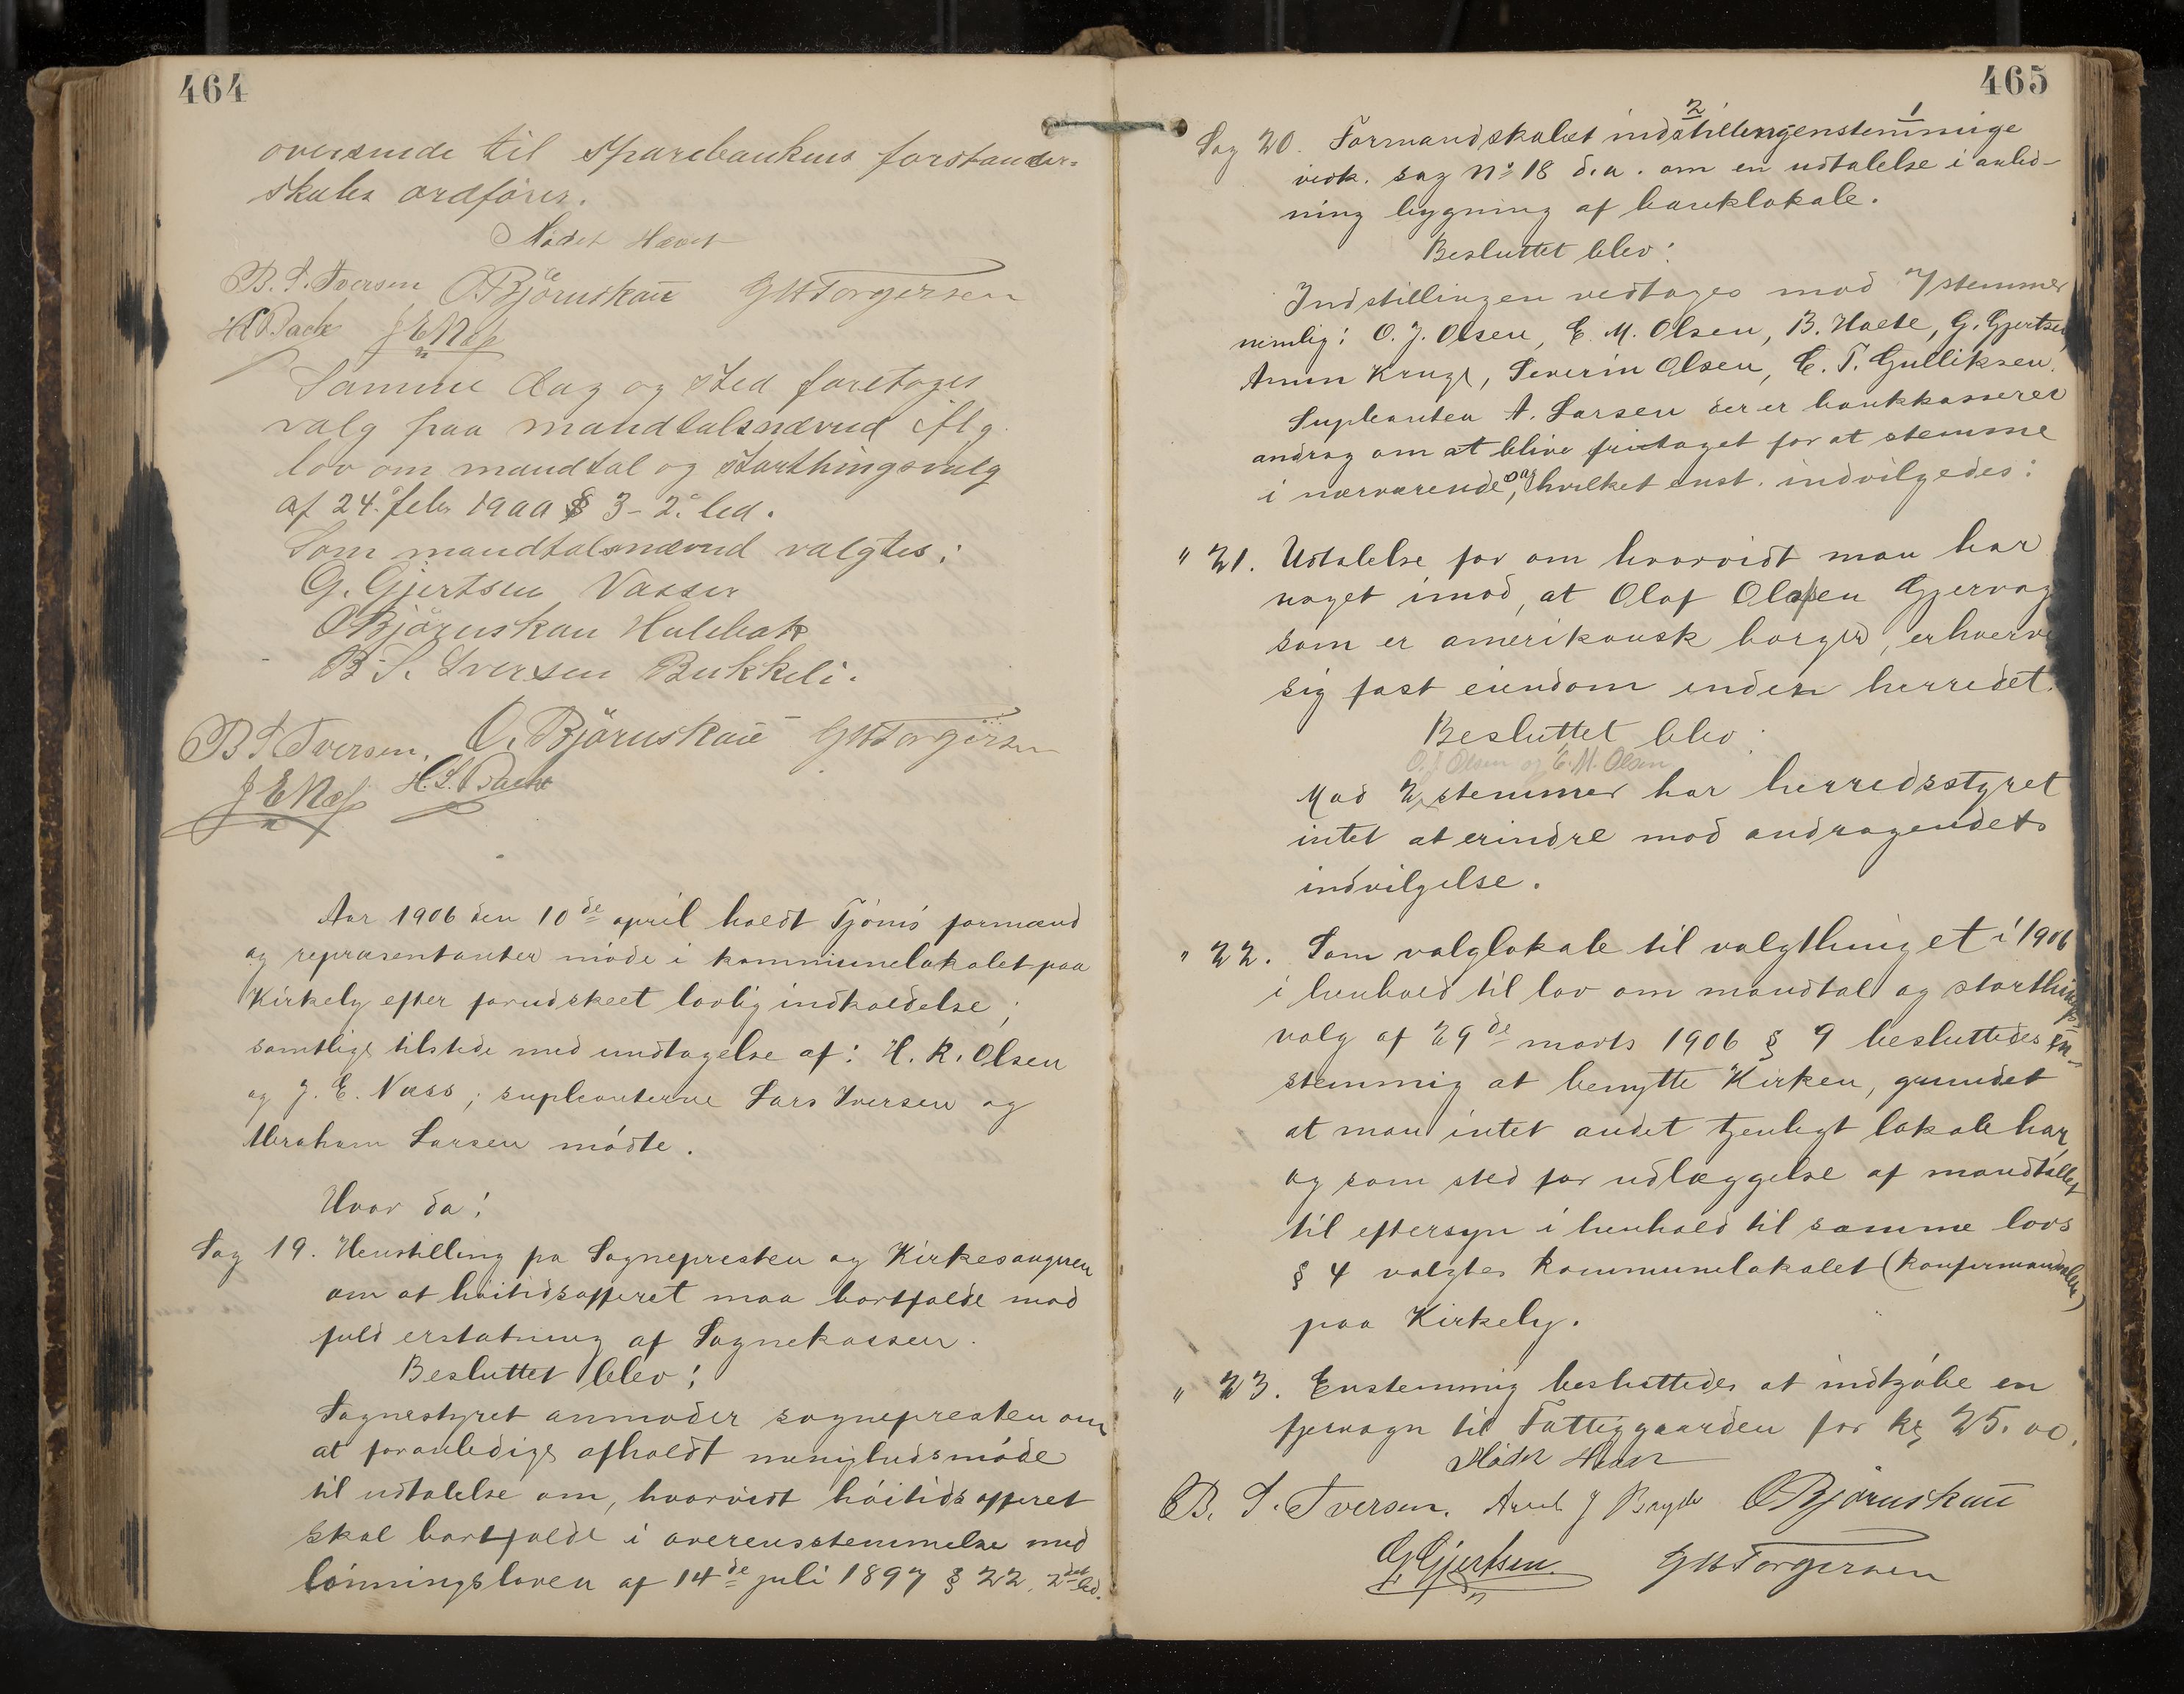 464
oversende til sparebankens forstander=
skabs ordfører.
Mødet Hævet
B. S. Iversen O. Björnskau G H Torgersen
H. L. Bache J E Næss
Samme dag og sted foretoges
valg paa mandtalsnævnd iflg.
lov om mandtal og storthingsvalg
af 24. febr 1900 § 3 - 2. led.
Som mandtalsnævnd valgtes:
G. Gjertsen Vasser
O Björnskau Hulebak
B. S. Iversen Bukkeli.
B S Iversen. O. Björnskau G H Torgersen
J E Næss H. L. Bache
Aar 1906 den 10de april holdt Tjömö formænd
og repræsentanter möde i kommunelokalet paa
Kirkely efter forudskeet lovlig indkaldelse;
samtlige tilstede med undtagelse af: H. R. Olsen
og J. E. Næss; supleanterne Lars Iversen og
Abraham Larsen mödte.
Hvor da:
Sag 19. Henstilling fra Sognepresten og Kirkesangeren
om at höitidsofferet maa bortfalde mod
fuld erstatning af Sognekassen.
Besluttet blev:
Sognestyret anmoder sognepresten om
at foranledige afholdt menighedsmöde
til udtalelse om, hvorvidt höitidsofferet
skal bortfalde i overensstemmelse med
lönningsloven af 14de juli 1897 § 22. 2det led.
465
Sag 20. Formandskabet indstilling² enstemmige¹
vedk. sag No 18 d.a. om en udtalelse i anled-
ning bygning af banklokale.
Besluttet blev:
Indstillingen vedtages mod 7 stemmer
nemlig: O. J. Olsen, E. M. Olsen, B. Hvete, G. Gjertsen,
Anun Kruge, Severin Olsen, C. T. Gulliksen.
Supleanten A. Larsen der er bankkasserer
androg om at blive fritaget for at stemme
i nærværende sag, hvilket enst. indvilgedes:
" 21. Udtalelse for om hvorvidt man har
noget imod, at Olaf Olafsen Gjervaag
som er amerikansk borger, erhverver
sig fast eiendom inden herredet.
Besluttet blev:
O. J Olsen og E. M. Olsen
Mod 2 stemmer har herredsstyret
intet at erindre mod andragendets
indvilgelse.
" 22. Som valglokale til valgthinget i 1906
i henhold til lov om mandtal og storthings=
valg af 29de marts 1906 § 9 besluttedes en-
stemmig at benytte Kirken, grundet
at man intet andet tjenligt lokale har,
og som sted for udlæggelse af mandtallet
til eftersyn i henhold til samme lovs
§ 4 valgtes kommunelokalet (konfirmandsalen)
paa Kirkely.
" 23. Enstemmig besluttedes at indkjöbe en
fjervogn til Fattiggaarden for kr 25.00.
Mødet Hævet
B. S. Iversen. J Bryde O Björnskau
G. Gjertsen. G H Torgersen